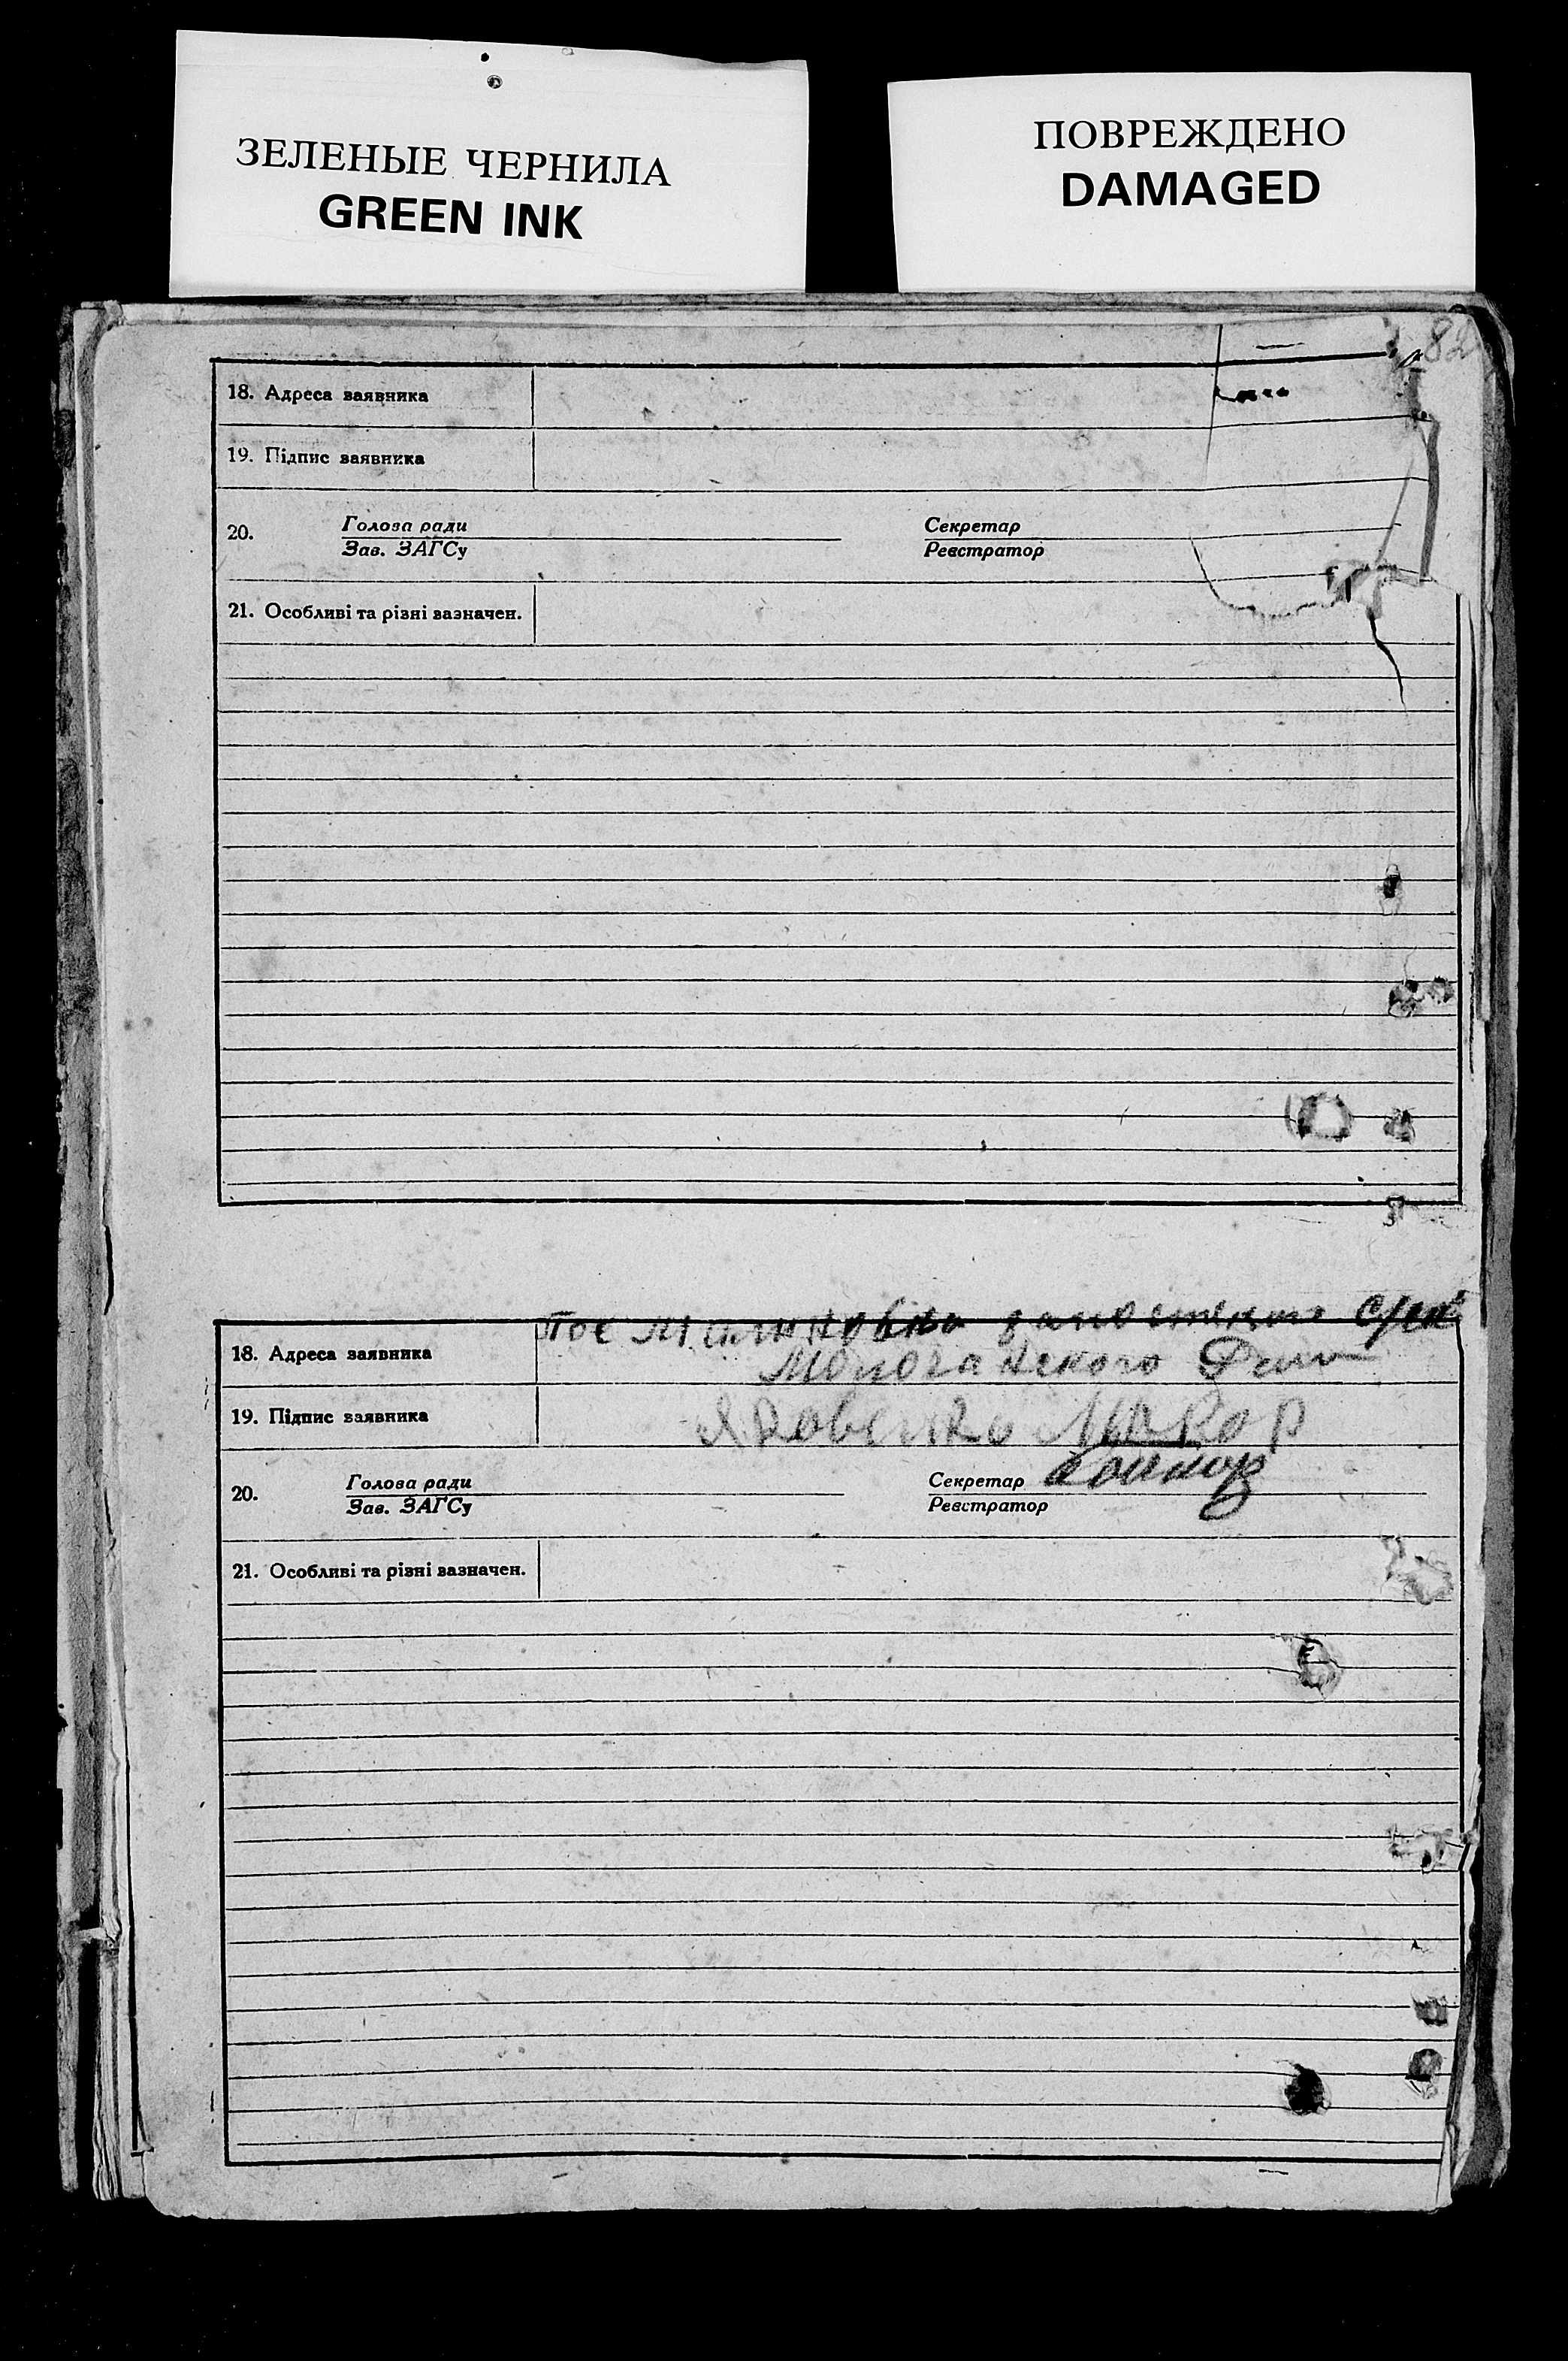 ЗЕЛЕНЫЕ ЧЕРНИЛА
GREEN INK
ПОВРЕЖДЕНО
DAMAGED
82
18. Адреса заявника
19. Підпис заявника
20. Голова ради Секретар
Зав. ЗАГСу Реєстратор
21. Особливі та різні зазначен.
пос
18. Адреса заявника
19. Підпис заявника Яковенко Макар
20. Голова ради Секретар
Зав. ЗАГСу Реєстратор
21. Особливі та різні зазначен.